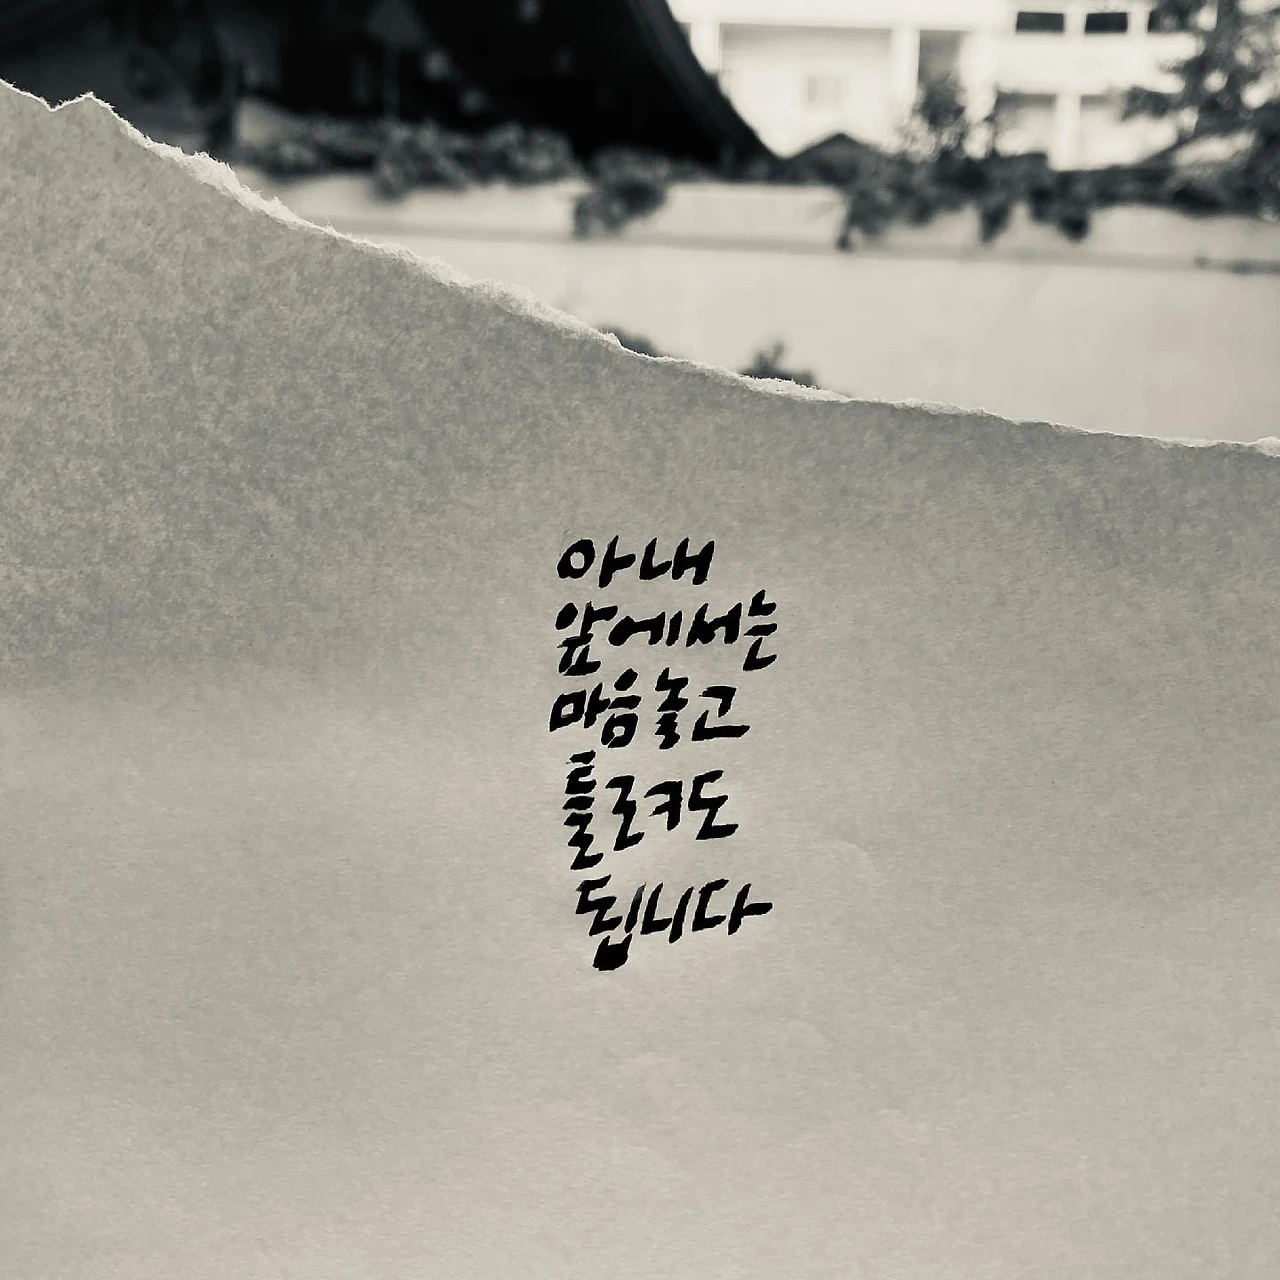 아내
앞에서는
마음놓고
틀로켜도
됩니다